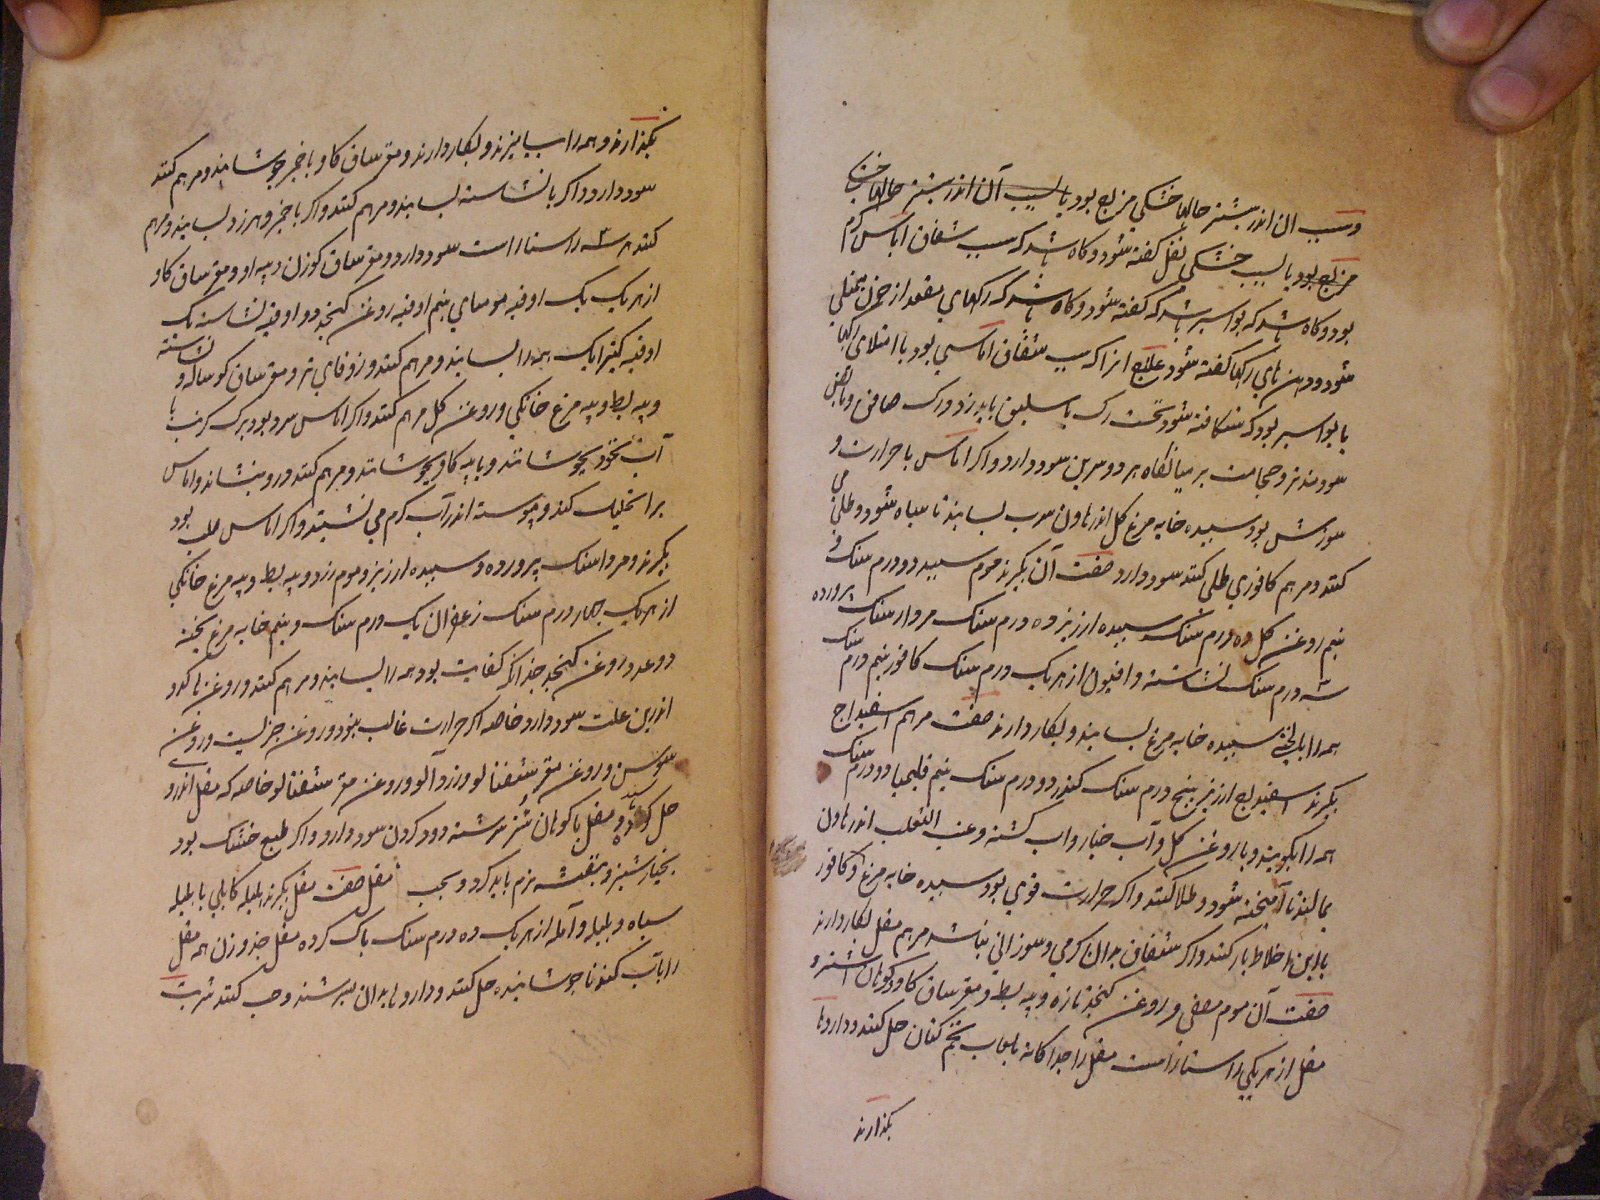 وسبب آن اندر بیشتر حالها خشکی مزاج بود یا بسبب آن اندر بیشتر حالها خشکی
مزاج بود یا بسبب خشکی ثفل کفته شود و کاه باشد که سبب شقاق آماس کرم
بود و کاه باشد که بواسیر باشد که کفته شود و کاه باشد که رکهای مقعد از خون ممتلی
شود و دهن های رکها کفته شود علاج انرا که سبب شقاق اماسی بود یا امتلای رکها
یا بواسیر بود که شکافته شود نخست رک باسلیق باید زد و رک صافن و مابض
سودمندتر و حجامت بر میانکاه هر دو سرین سود دارد و اکر اماس با حرارت و
سوزش بود سپیده خایه مرغ کل اندر هاون سرب بسایند تا سیاه شود و طلی می
کنند و مرهم کافوری طلی کنند سود دارد صفت آن بکیرند موم سپید دو درم سنک و
نیم روغن کل ده درم سنک سپیده ارزیز ده درم سنک مردارسنک پرورده
سه درم سنک نشاسته و افیون از هر یک درم سنک کافور نیم درم سنک
همه را با سپیده خایه مرغ بسایند و بکار دارند صفت مرهم اسفیداج
بکیرند اسفیداج ارزیز پنج درم سنک کندر دو درم سنک نیم قلیمیا دو درم سنک
همه را بکوبند و با روغن کل و آب خیار و اب کشنه و عنب الثعلب اندر هاون
بمالند تا آمیخته شود و طلا کنند و اکر حرارت قوی بود سپیده خایه مرغ و کافور
با این اخلاط یار کنند و اکر شقاق بدان کرمی و سوزانی نباشد مرهم مقل بکار دارند
صفت آن موم مصفی و روغن کنجد تازه و پیه بط و مغز ساق کاو و کوهان اشتر و
مقل از هر یکی راستاراست مقل را جداکانه بلعاب تخم کتان حل کنند و داروها
بکذارند
بکذارند و همه را بیامیزند و بکار دارند و مغز ساق کاو با خمر جوشانیده و مرهم کنند
سود دارد و اکر با نشاسته بسایند و مرهم کنند و اکر با خمر و هرزد بسایند و مرهم
کنند هر سه راستاراست سود دارد و مغز ساق کوزن و پیه او و مغز ساق کاو
از هر یک یک اوقیه مومیای نیم اوقیه روغن کنجد دو اوقیه نشاسته یک
اوقیه کتیرا یک همه را بسایند و مرهم کنند و زوفای تر و مغز ساق کوساله و نشاسته
و پیه بط و پیه مرغ خانکی و روغن کل مرهم کنند و اکر اماس سرد بود برک کرنب با
آب نخود بجوشانند و با پیه کاو بجوشانند و مرهم کنند و رو بنشاند و اماس
برا تحلیل کند و پیوسته اندر آب کرم می نشیند و اکر اماس صلب بود
بکیرند مرداسنک پرورده و سپیده ارزیز و موم زرد و پیه بط و پیه مرغ خانکی
از هر یک چهار درم سنک زعفران یک درم سنک و نیم خایه مرغ پخته
دو عدد و روغن کنجد چندانک کفایت بود همه را بسایند و مرهم کنند و روغن کدو
اندرین علت سود دارد خاصه اکر حرارت غالب بود و روغن و روغن
سوسن و روغن مغز شفتالو و زردآلو و روغن مغز شفتالو خاصه که مقل اندرو
حل کرده و مقل با کوهان شتر سرشته دود کردن سود دارد و اکر طبع خشک بود
بخیارشنبر و بنفشه نرم باید کرد و بحب مقل صفت مقل بکیرند هلیله کابلی با هلیله
سیاه و بلیله و آمله از هر یک ده درم سنک پاک کرده مقل چند وزن همه مقل
را بآب کندنا جوشانیده حل کنند و داروها بدان بسرشند و حب کنند شربت